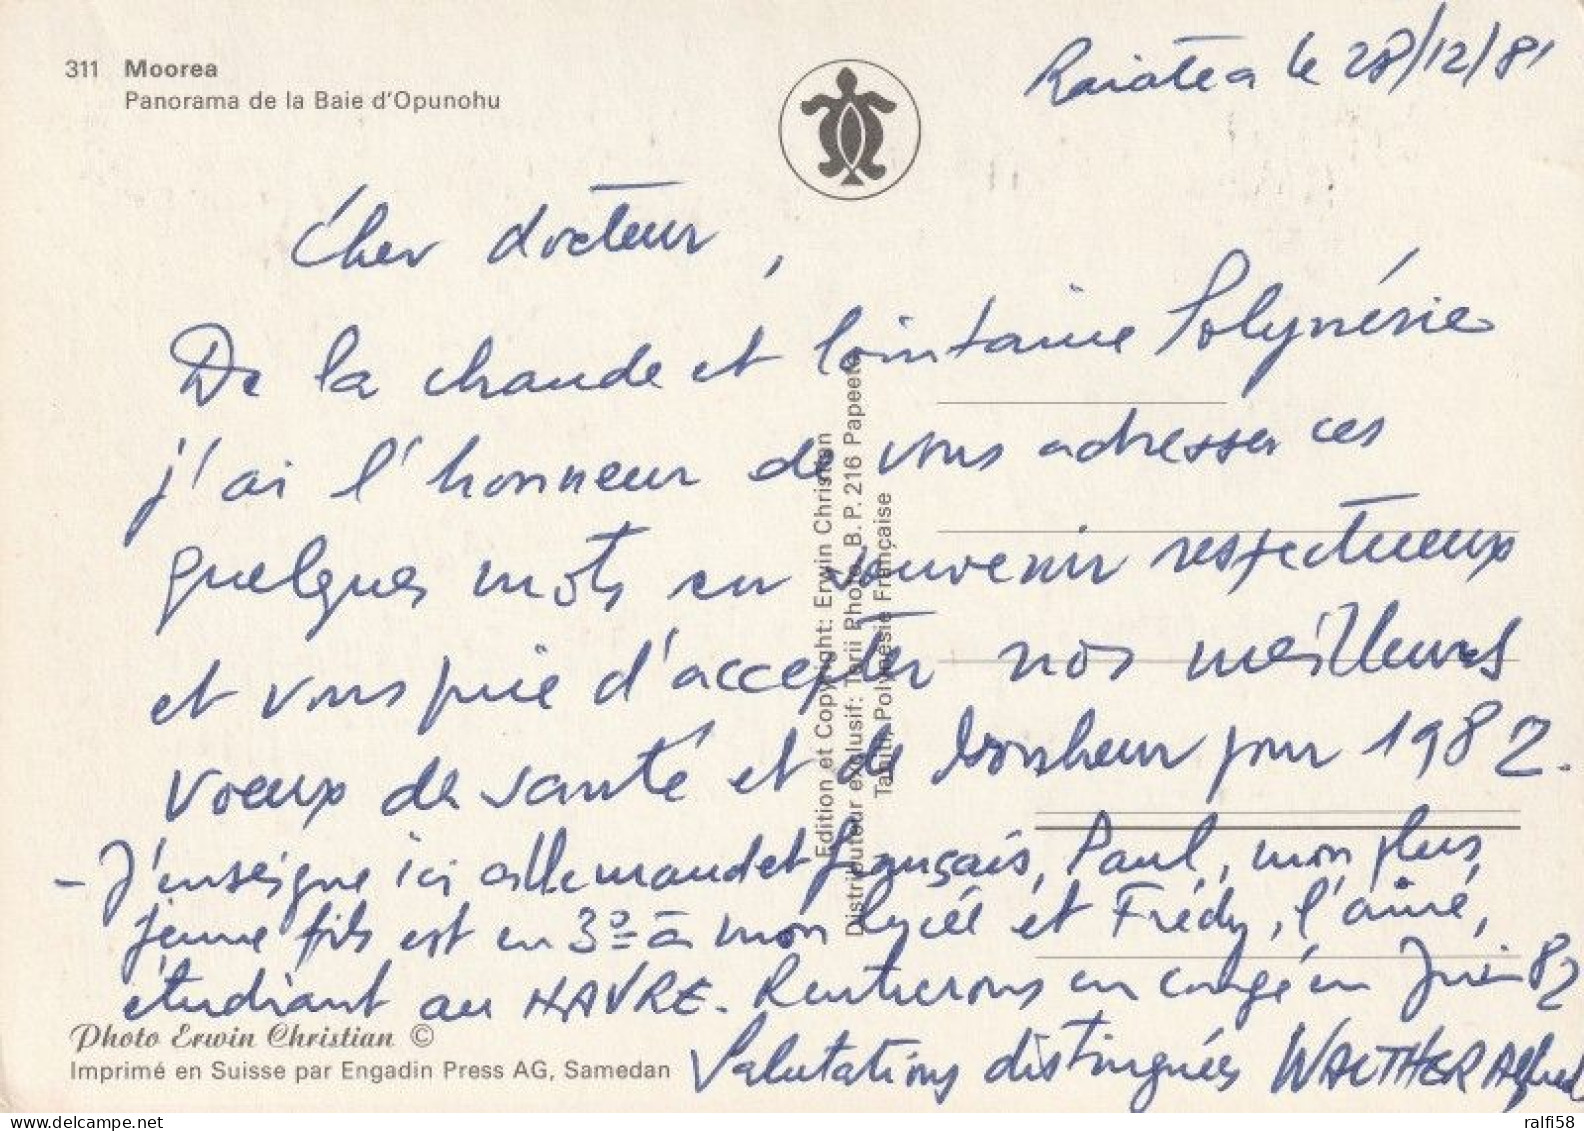 311 Moorea
Panorama de la Baie d'Opunohu
Raiatea le 28/12/81
Cher docteur,
De la chaude et lointaine Polynésie
j'ai l'honneur de vous adresser ces
quelques mots en souvenir respectueux
et vous prie d'accepter nos meilleurs
voeux de santé et de bonheur pour 1982.
- J'enseigne ici allemand et français, Paul, mon plus
jeune fils est en 3º à mon lycée et Frédy, l'aîné,
étudiant au HAVRE. Rentrerons en congé en Juin 82
Salutations distinguées WALTHER Alfred
Edition et Copyright: Erwin Christian
Distributeur exclusif: Tarii Photo, B.P. 216 Papeete
Tahiti, Polynésie Française
Photo Erwin Christian ©
Imprimé en Suisse par Engadin Press AG, Samedan
delcampe.net
ralfi58